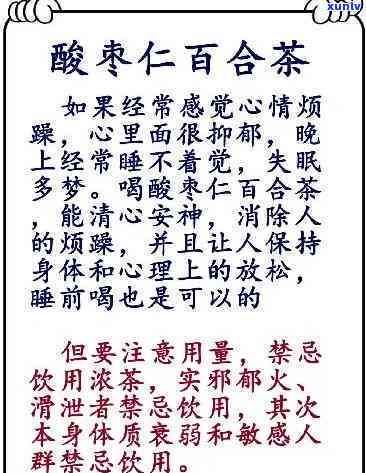 xunlv
酸枣仁百合茶
如果经常感觉心情烦
躁，心里面很抑郁，晚
上经常睡不着觉，失眠
多梦。喝酸枣仁百合茶
，能清心安神，消除人
的烦躁，并且让人保持
身体和心理上的放松，
睡前喝也是可以的
但要注意用量，禁忌
饮用浓茶，实邪郁火、
滑泄者禁忌饮用，其次
本身体质衰弱和敏感人
群禁忌饮用。